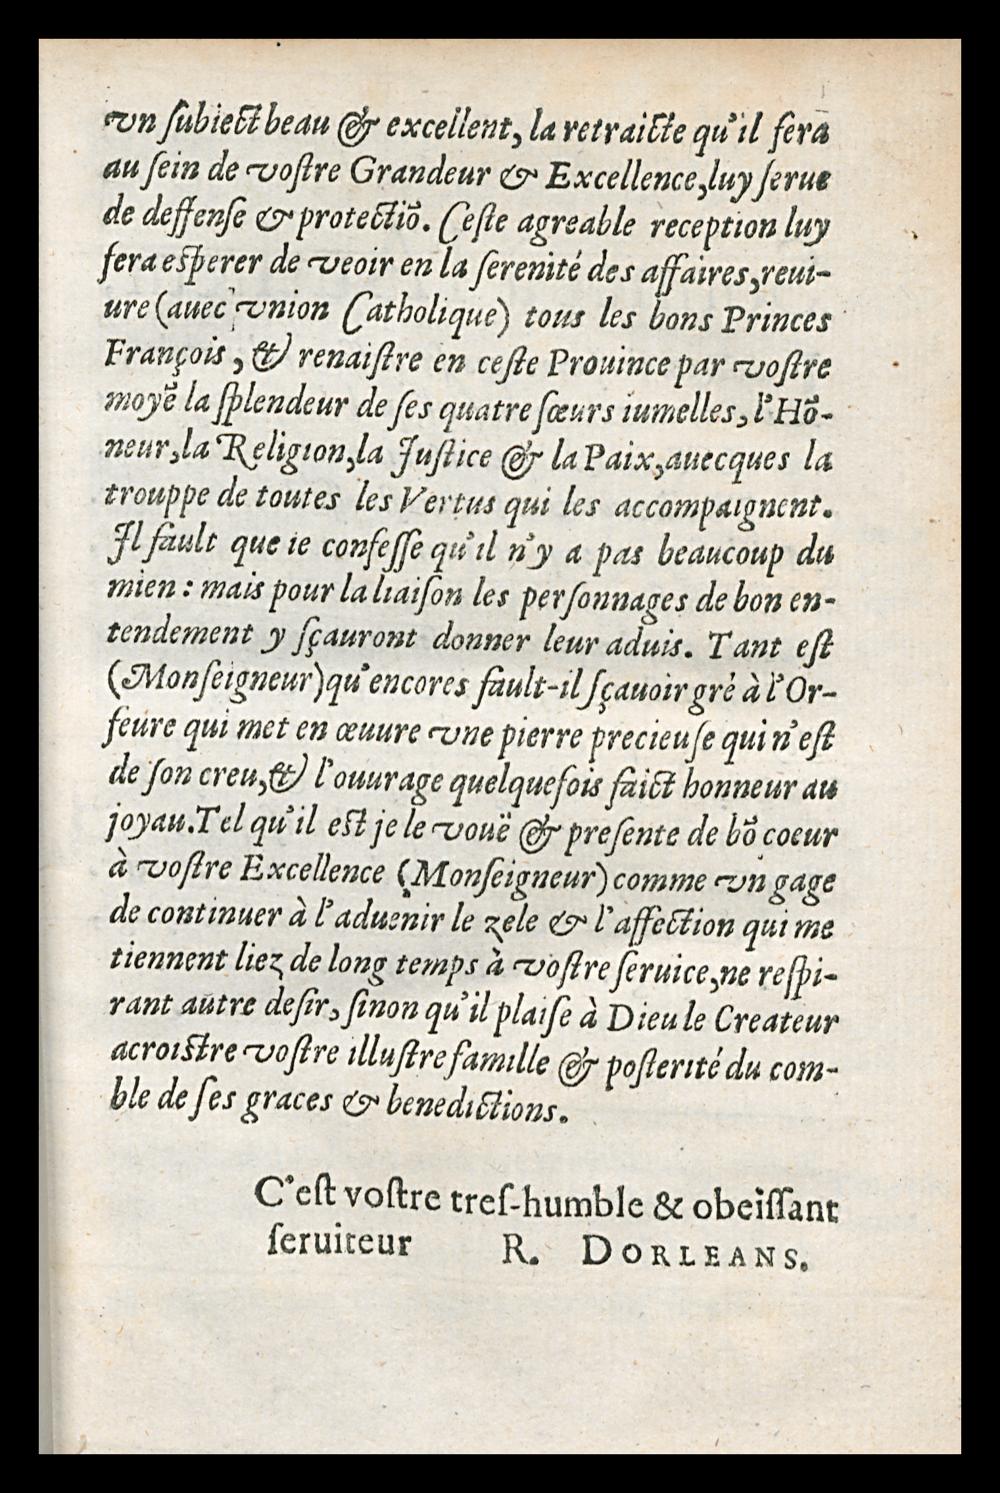 vn ſubiect beau & excellent, la retraicte qu'il fera
au ſein de voſtre Grandeur & Excellence, luy ſerue
de deffenſe & protectiõ. Ceſte agreable reception luy
fera eſperer de veoir en la ſerenité des affaires, reui-
ure (auec vnion Catholique) tous les bons Princes
François, & renaiſtre en ceſte Prouince par voſtre
moyẽ la ſplendeur de ſes quatre ſœurs iumelles, l'Hõ-
neur, la Religion, la Juſtice & la Paix, auecques la
trouppe de toutes les Vertus qui les accompaignent.
Il fault que ie confeſſe qu'il n'y a pas beaucoup du
mien : mais pour la liaiſon les perſonnages de bon en-
tendement y ſçauront donner leur aduis. Tant eſt
(Monſeigneur) qu'encores fault-il ſçauoir gré à l'Or-
feure qui met en œuure vne pierre precieuſe qui n'eſt
de ſon creu, & l'ouurage quelquefois faict honneur au
joyau. Tel qu'il eſt je le vouë & preſente de bõ coeur
à voſtre Excellence (Monſeigneur) comme vn gage
de continuer à l'aduenir le zele & l'affection qui me
tiennent liez de long temps à voſtre ſeruice, ne reſpi-
rant autre deſir, ſinon qu'il plaiſe à Dieu le Createur
acroiſtre voſtre illuſtre famille & poſterité du com-
ble de ſes graces & benedictions.
C'eſt voſtre treſ-humble & obeïſſant
ſeruiteur R. DORLEANS.